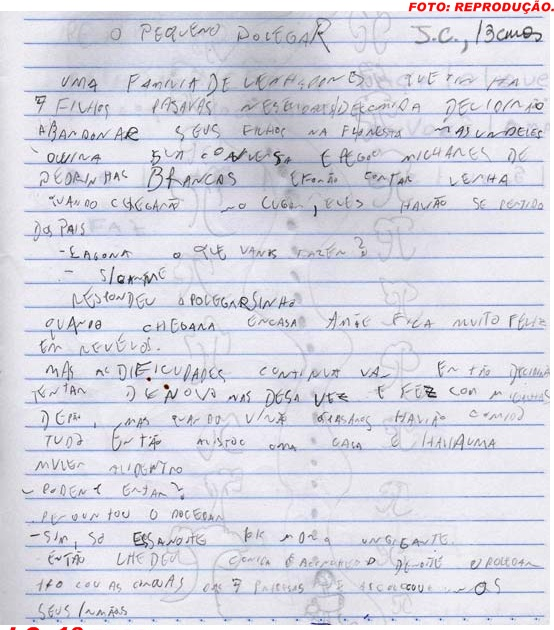 FOTO: REPRODUÇÃO.
O PEQUENO POLEGAR J.C., 13 anos
UMA FAMILIA DE LENHADORES QUE TINHA
7 FILHOS PASAVAS DECIDIRÃO
ABANDONAR SEUS FILHOS NA FLORESTA MAS UM DELES
OUVIRA SUA CONVERSA E PEGOU MILHARES DE
PEDRINHAS BRANCAS E FORÃO CORTAR LENHA
QUANDO CHEGARÃ NO LUGAR, ELES HAVIÃO SE PERTIDO
DOS PAIS
- E AGORA O QUE VAMOS FAZER?
- SIGANME
RESPONDEU O POLEGARSINHO
QUANDO CHEGARA ENCASA A MÃE FICA MUITO FELIZ
EM REVELOS.
MAS AS DIFICUDADES CONTINUA VA ENTÃO
TENTAR DENOVO MAS DESA VEZ E FEZ COM
DE PÃO, MAS QUANDO OS PASAROS HAVIÃO
TUDO ENTÃO UMA CASA E HAVIA UMA
MULER ALIDENTRO
- PODEMOS ENTAR?
PERGUNTOU O POLEGAR
- SIM, SO ESSANOITE UNGIGANTE.
ENTÃO LHE DEU COMIDA DENOITE O POLEGAR
AS COROAS DAS 7 E COLOCOU NOS
SEUS IRMÃOS